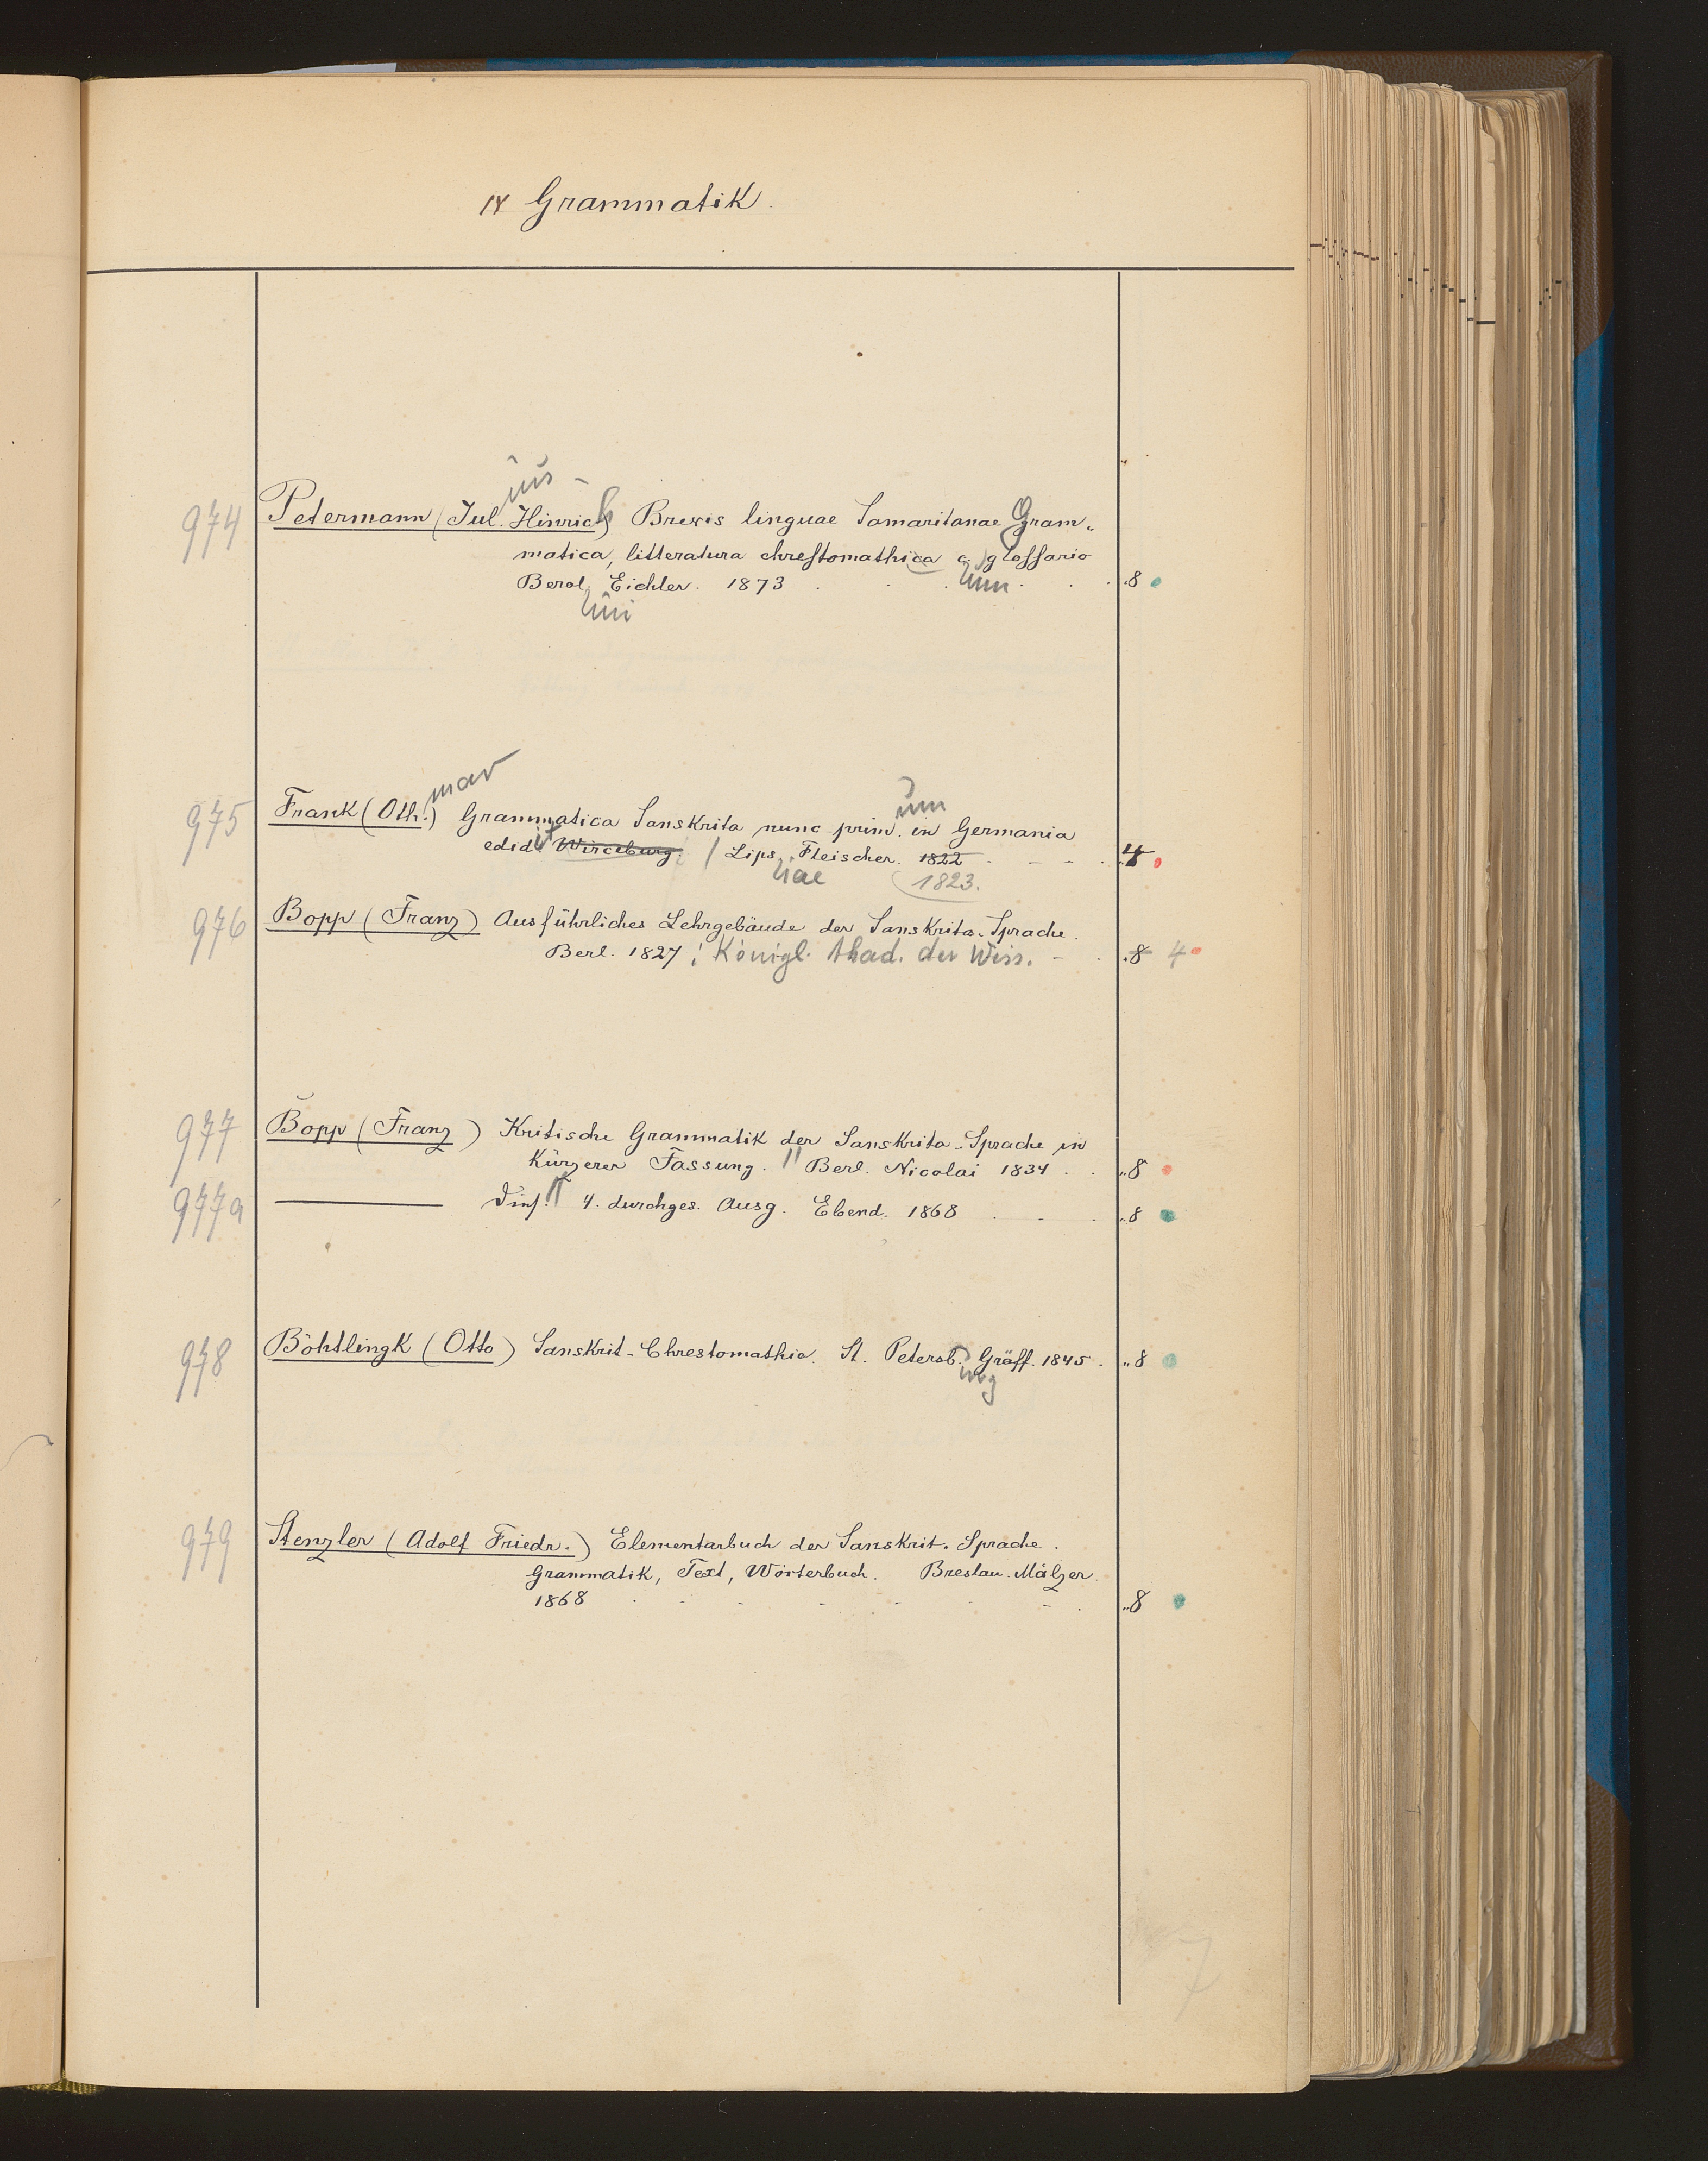 Grammatik.
ius
974 Petermann (Jul. Hinrich) Brevis linguae Samaritanae Gram-
matica, litteratura chrestomathica c. glossario
Berol. Eichler. 1873 8
lini
mar
um
975 Frank (Oth.) Grammatica Sanskrita nunc prim. in Germania
edidit Wirceburg. / Lips. Fleischer. 1822 4
iae 1823.
976 Bopp (Franz) Ausführliches Lehrgebäude der Sanskrita-Sprache.
Berl. 1827; Königl. Akad. der Wiss. 8 4
977 Bopp (Franz) Kritische Grammatik der Sanskrita-Sprache in
Kürzerer Fassung. Berl. Nicolai 1834 8
977a 4. durchges. Ausg. Ebend. 1868 8
978 Böhtlingk (Otto) Sanskrit-Chrestomathie. St. Petersb. Gräff. 1845. 8
urg
979 Stenzler (Adolf Friedr.) Elementarbuch der Sanskrit-Sprache.
Grammatik, Text, Wörterbuch. Breslau. Mälzer.
1868 8
7